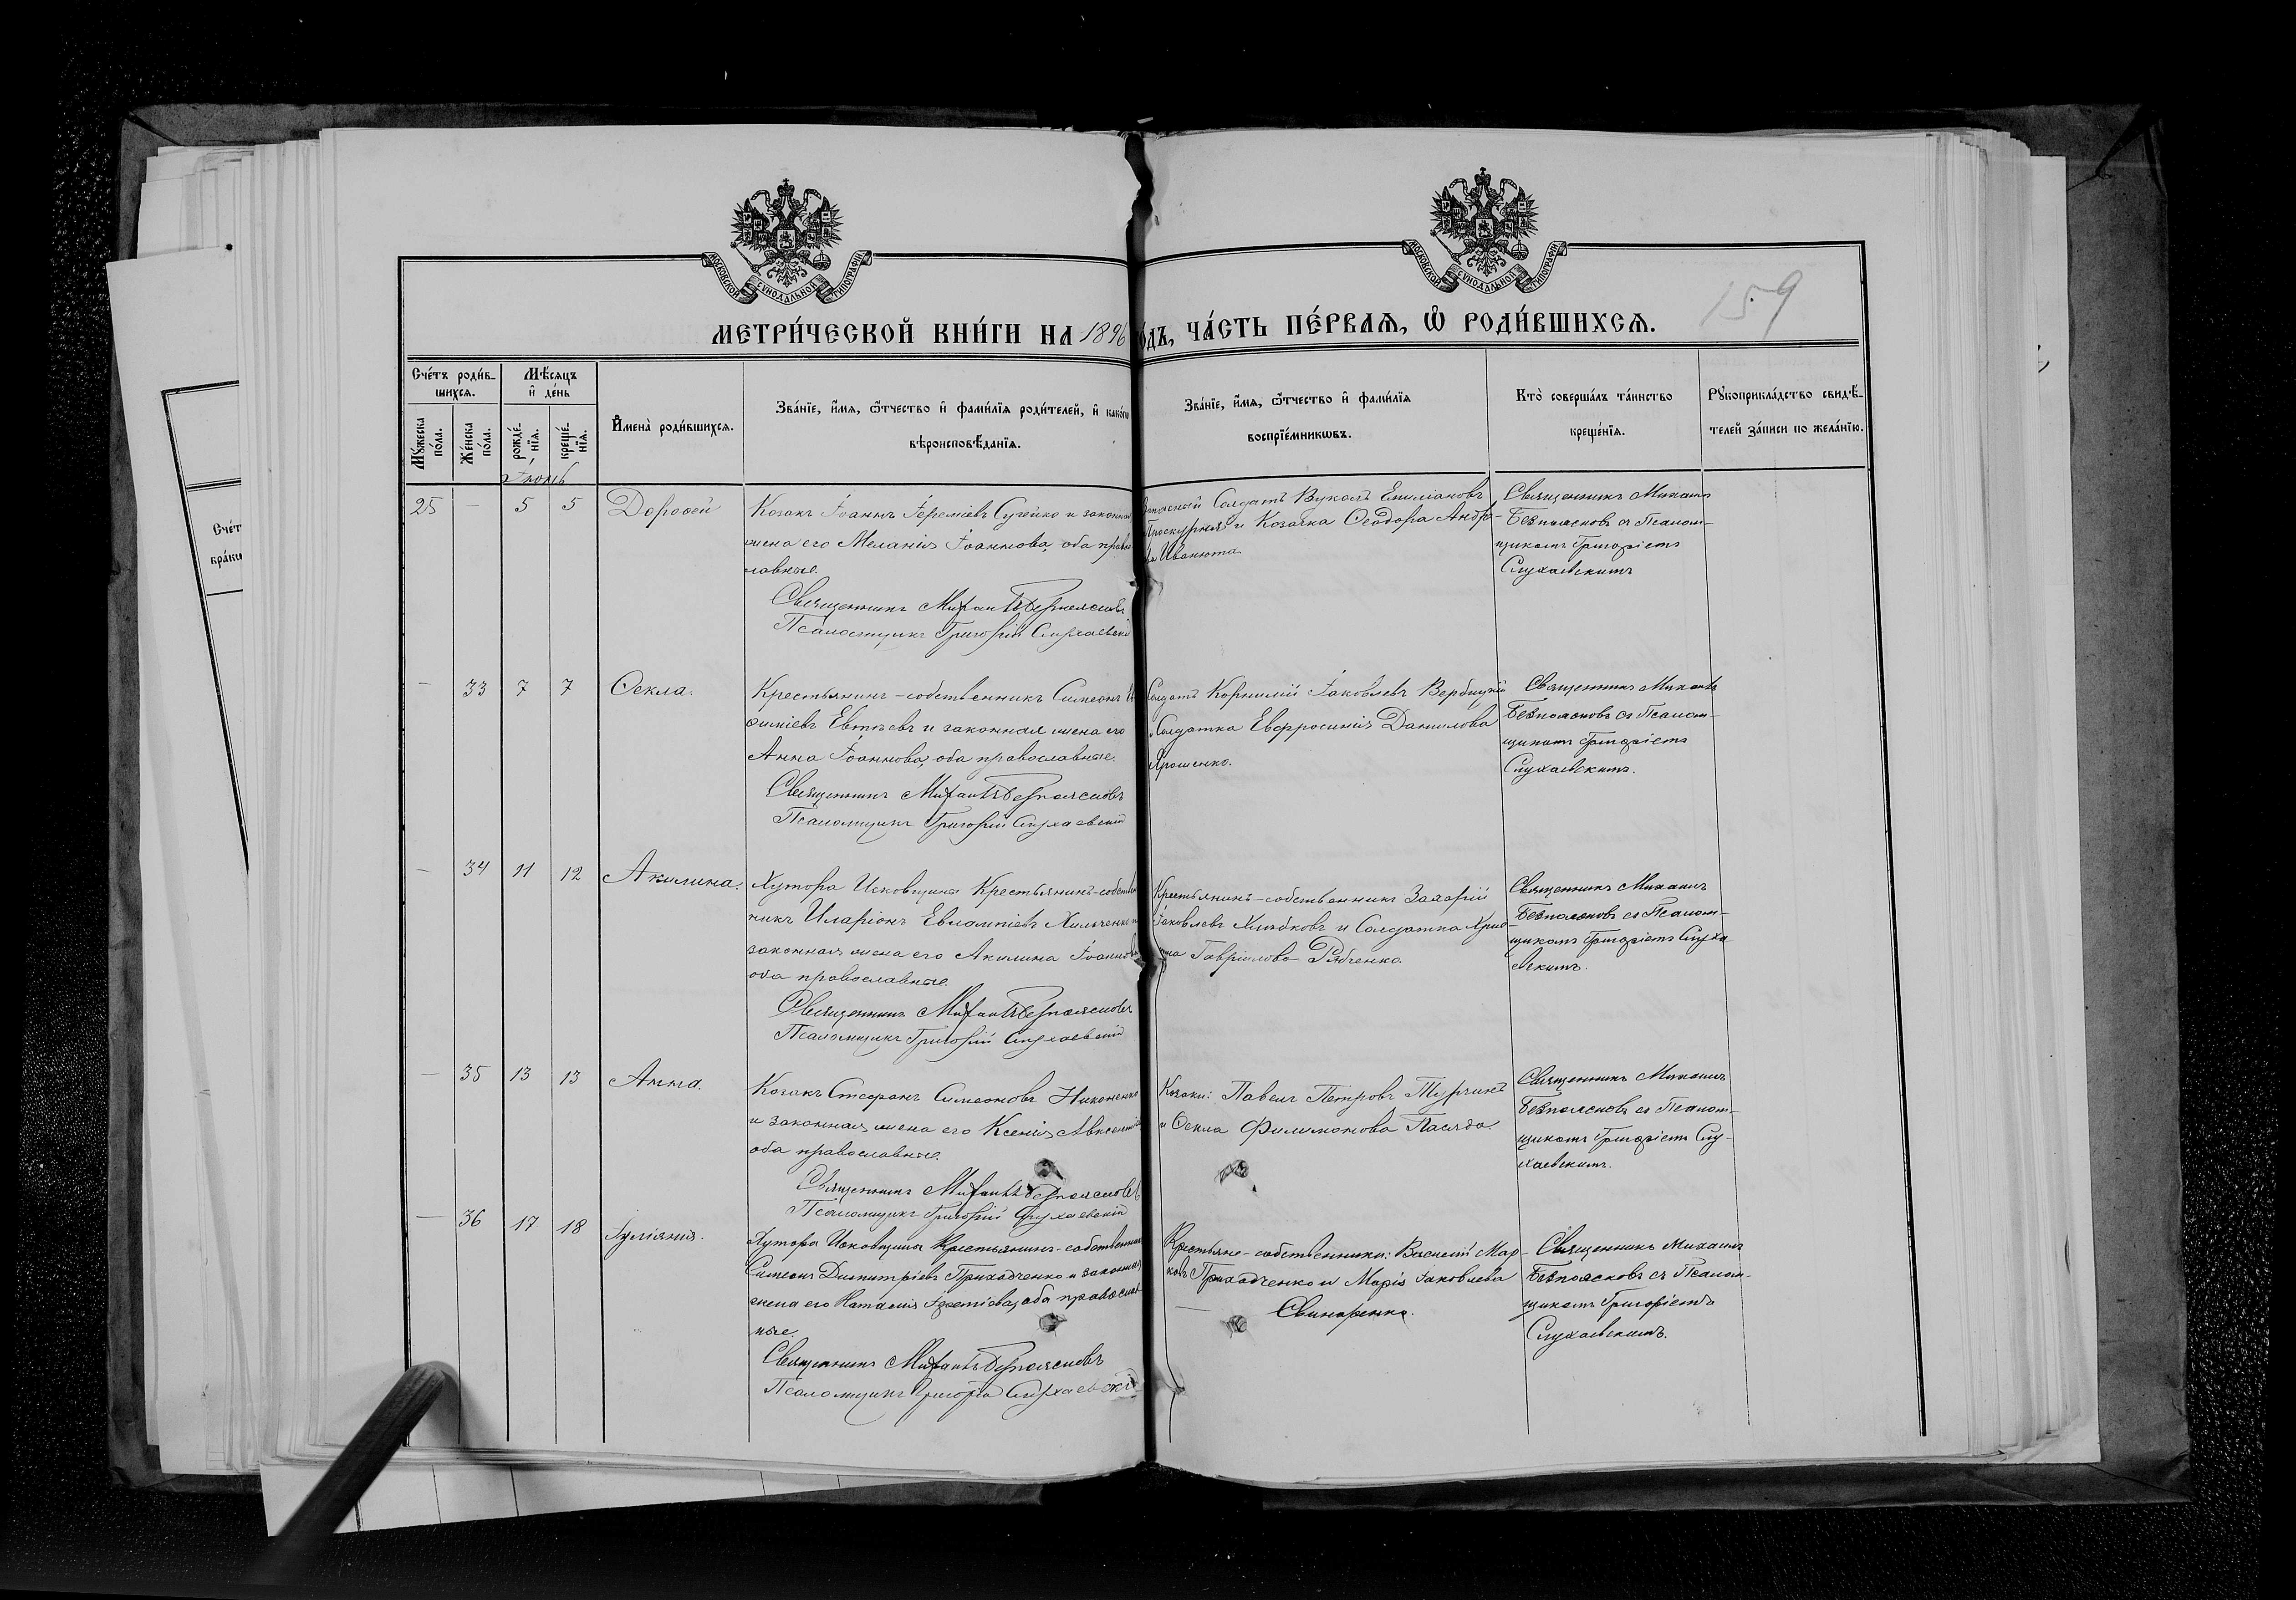 МОСКОВСКОЙ СѴНОДАЛЬНОЙ ТИПОГРАФІИ
МОСКОВСКОЙ СѴНОДАЛЬНОЙ ТИПОГРАФІИ
159
МЕТРИ́ЧЕСКОЙ КНИ́ГИ НА 1896
ОДЪ, ЧА́СТЬ ПЕ́РВАЯ, Ѿ РОДИ́ВШИХСЯ.
Сче́тъ роди́в-
шихся.
Мѣ́сяцъ
и де́нь
Му́жеска
по́ла.
Же́нска
по́ла.
рожде́-
нїя.
креще́-
нїя.
Имена̀ роди́вшихся.
Зва́нїе, и́мя, ѿ́тчество и фами́лїя роди́телей, и како́гѡ
вѣроисповѣ́данїя.
Зва́нїе, и́мя, ѿ́тчество и фами́лїя
воспрїе́мникѡвъ.
Кто̀ соверша́лъ та́инство
креще́нїя.
Рукоприкла́дство свидѣ́-
телей за́писи по жела́нїю.
Счет
браки
Іюнь
25 — 5 5 Дорофей
Козакъ Іоаннъ Іереміевъ и законная
жена его Меланія Іоаннова, оба право
славные.
Священникъ Михаилъ Безпоясковъ
Псаломщикъ Григорій Слухаевскій
Запасный Солдатъ Вуколъ Емиліановъ
и Козачка Ѳеодора Андре-
ва Иванюта.
Священникъ Михаилъ
Безпоясковъ съ Псалом-
щикомъ Григоріемъ
Слухаевскимъ
— 33 7 7 Ѳекла.
Крестьянинъ-собственникъ Симеонъ
Евтѣевъ и законная жена его
Анна Іоаннова, оба православные.
Священникъ Михаилъ Безпоясковъ
Псаломщикъ Григорій Слухаевскій
Солдатъ Корнилій Іаковлевъ Вербицкій
и Солдатка Евфросинія Данилова
Ярошенко.
Священникъ Михаилъ
Безпоясковъ съ Псалом-
щикомъ Григоріемъ
Слухаевскимъ.
— 34 11 12 Акилина.
Хутора Исковщина Крестьянинъ-собствен
никъ Иларіонъ Евлампіевъ и
законная жена его Акилина Іоаннова
оба православные.
Священникъ Михаилъ Безпоясковъ
Псаломщикъ Григорій Слухаевскій
Крестьянинъ-собственникъ Захарій
Іаковлевъ Хлѣбковъ и Солдатка Хрис-
тина Гавріилова Рябченко.
Священникъ Михаилъ
Безпоясковъ съ Псалом-
щикомъ Григоріемъ Слуха
евскимъ.
— 35 13 13 Анна.
Козакъ Стефанъ Симеоновъ Никоненко
и законная жена его Ксенія Авксентіева
оба православные.
Священникъ Михаилъ Безпоясковъ
Псаломщикъ Григорій Слухаевскій
Козаки: Павелъ Петровъ Турчинъ
и Ѳекла Филимонова Пасяда.
Священникъ Михаилъ
Безпоясковъ съ Псалом-
щикомъ Григоріемъ Слу-
хаевскимъ.
— 36 17 18 Іуліанія.
Хутора Исковщина Крестьянинъ-собственникъ
Симеонъ Димитріевъ Приходченко и законная
жена его Наталія, оба православ
ные.
Священникъ Михаилъ Безпоясковъ
Псаломщикъ Григорій Слухаевскій
Крестьяне-собственники: Василій Мар-
ковъ Приходченко и Марія Іаковлева
Свинаренко.
Священникъ Михаилъ
Безпоясковъ съ Псалом-
щикомъ Григоріемъ
Слухаевскимъ.